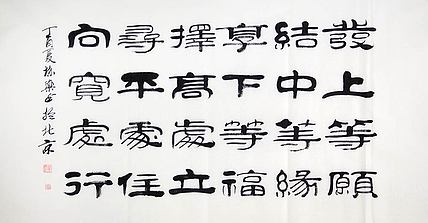 發上等願
結中等緣
享下等福
擇髙處立
尋平處住
向寬處行
丁酉夏於北京